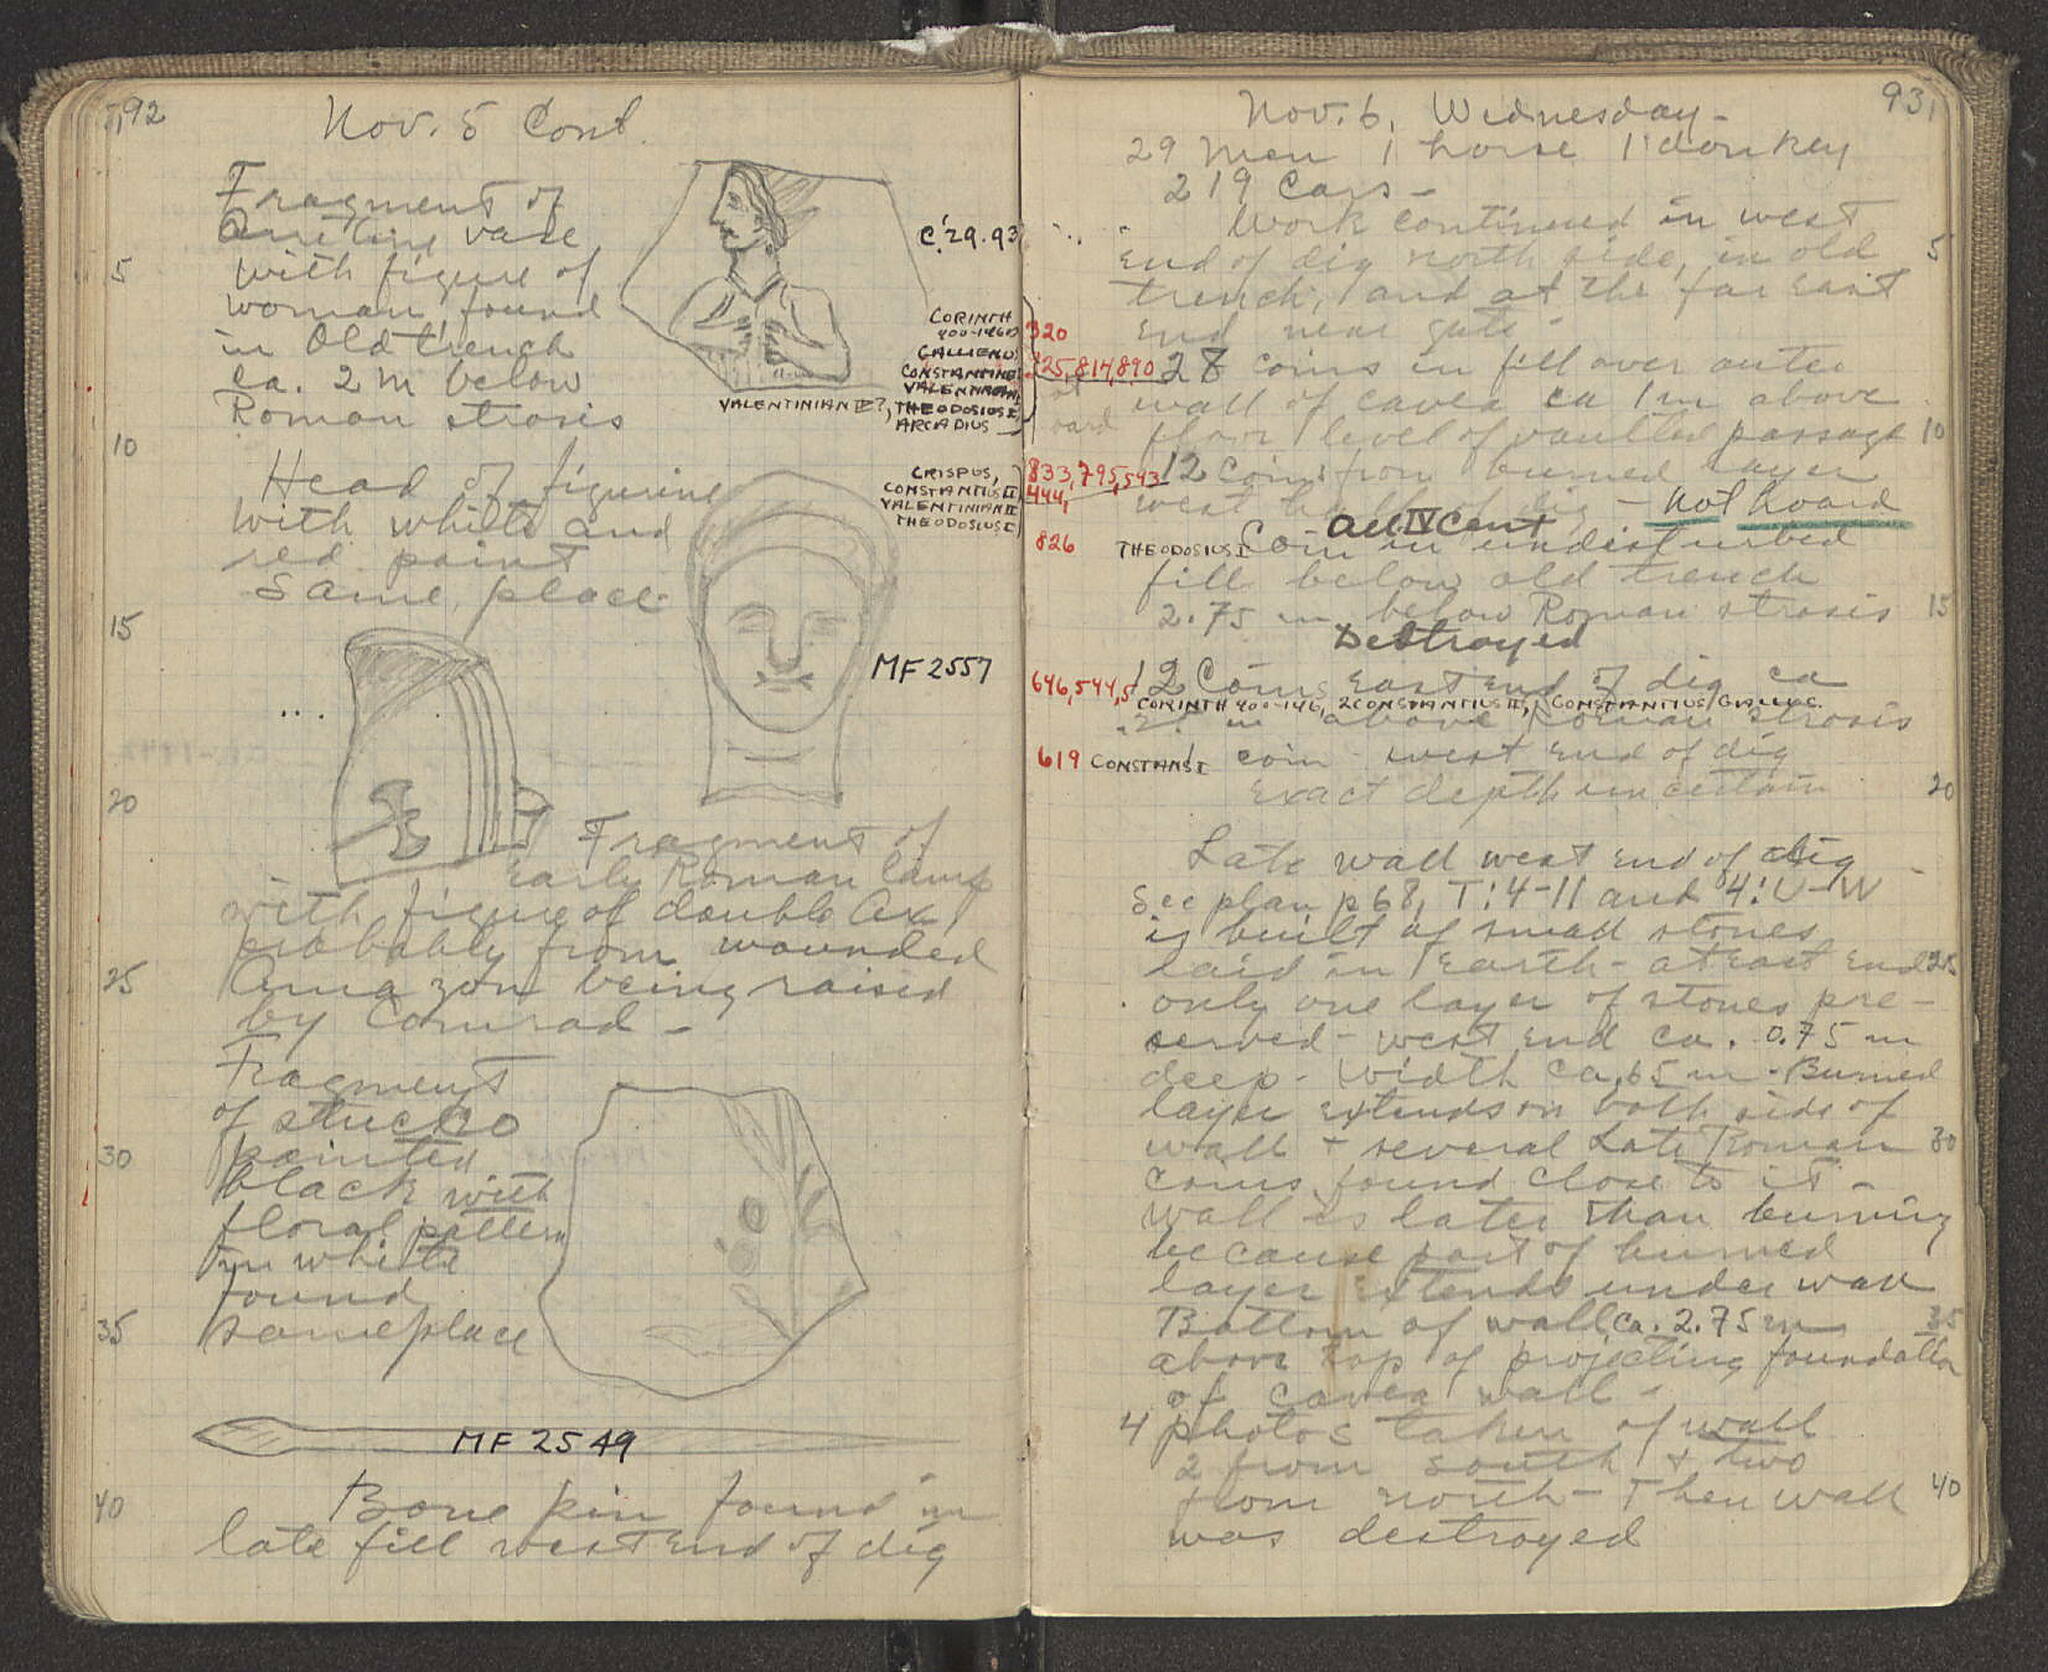 92
Nov. 5 Cont.
Fragment of
Arretine vase
with figure of
woman found
in Old trench
ca. 2 m below
Roman strosis
C.'29.93
Head of figurine
with white and
red paint
Same place
MF 2557
Fragment of
Early Roman lamp
with figure of double Ax,
probably from wounded
Amazon being raised
by Comrad -
Fragment
of stucco
painted
black with
floral pattern
in white
found
same place
MF 2549
Bone pin found in
late fill west end of dig
5
10
15
20
25
30
35
40
93
Nov. 6, Wednesday -
29 men 1 horse 1 donkey
219 Cars -
Work continued in west
end of dig north side, in old
trench, and at the far east
end near gate -
CORINTH
400-146
GALLIENUS
CONSTANTINE I
VALENTINIAN I
VALENTINIAN II?, THEODOSIUS I,
ARCADIUS
320
825,814,890
28 coins in fill over outer
wall of cavea ca 1 m above
floor level of vaulted passage
CRISPUS,
CONSTANTIUS II
VALENTINIAN II
THEODOSIUS I
833,795,543
444,
12 coins from burned layer
west half of dig - not hoard
All IV Cent
826 THEODOSIUS I Coin in undisturbed
fill below old trench
2.75 m below Roman strosis
Destroyed
646,544,5
12 Coins east end of dig ca
CORINTH 400-146, 2 CONSTANTIUS II, CONSTANTIUS GALLUS
.25 m above Roman strosis
619 CONSTANS I 1 coin west end of dig
Exact depth uncertain
Late wall west end of dig
See plan p 68, T:4-11 and 4:U-W
is built of small stones
laid in earth - at east end
only one layer of stones pre-
served - west end ca. 0.75 m
deep - Width ca .65 m - Burned
layer extends on both side of
wall + several Late Roman
Coins found close to it -
Wall is later than burning
because part of burned
layer extends under wall
Bottom of wall ca. 2.75 m
above top of projecting foundation
of cavea wall -
4 photos taken of wall
2 from south + two
from north - Then wall
was destroyed
5
10
15
20
25
30
35
40